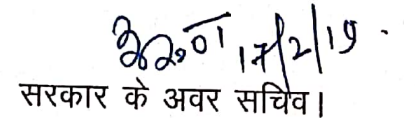 17/2/19
सरकार के अवर सचिव।